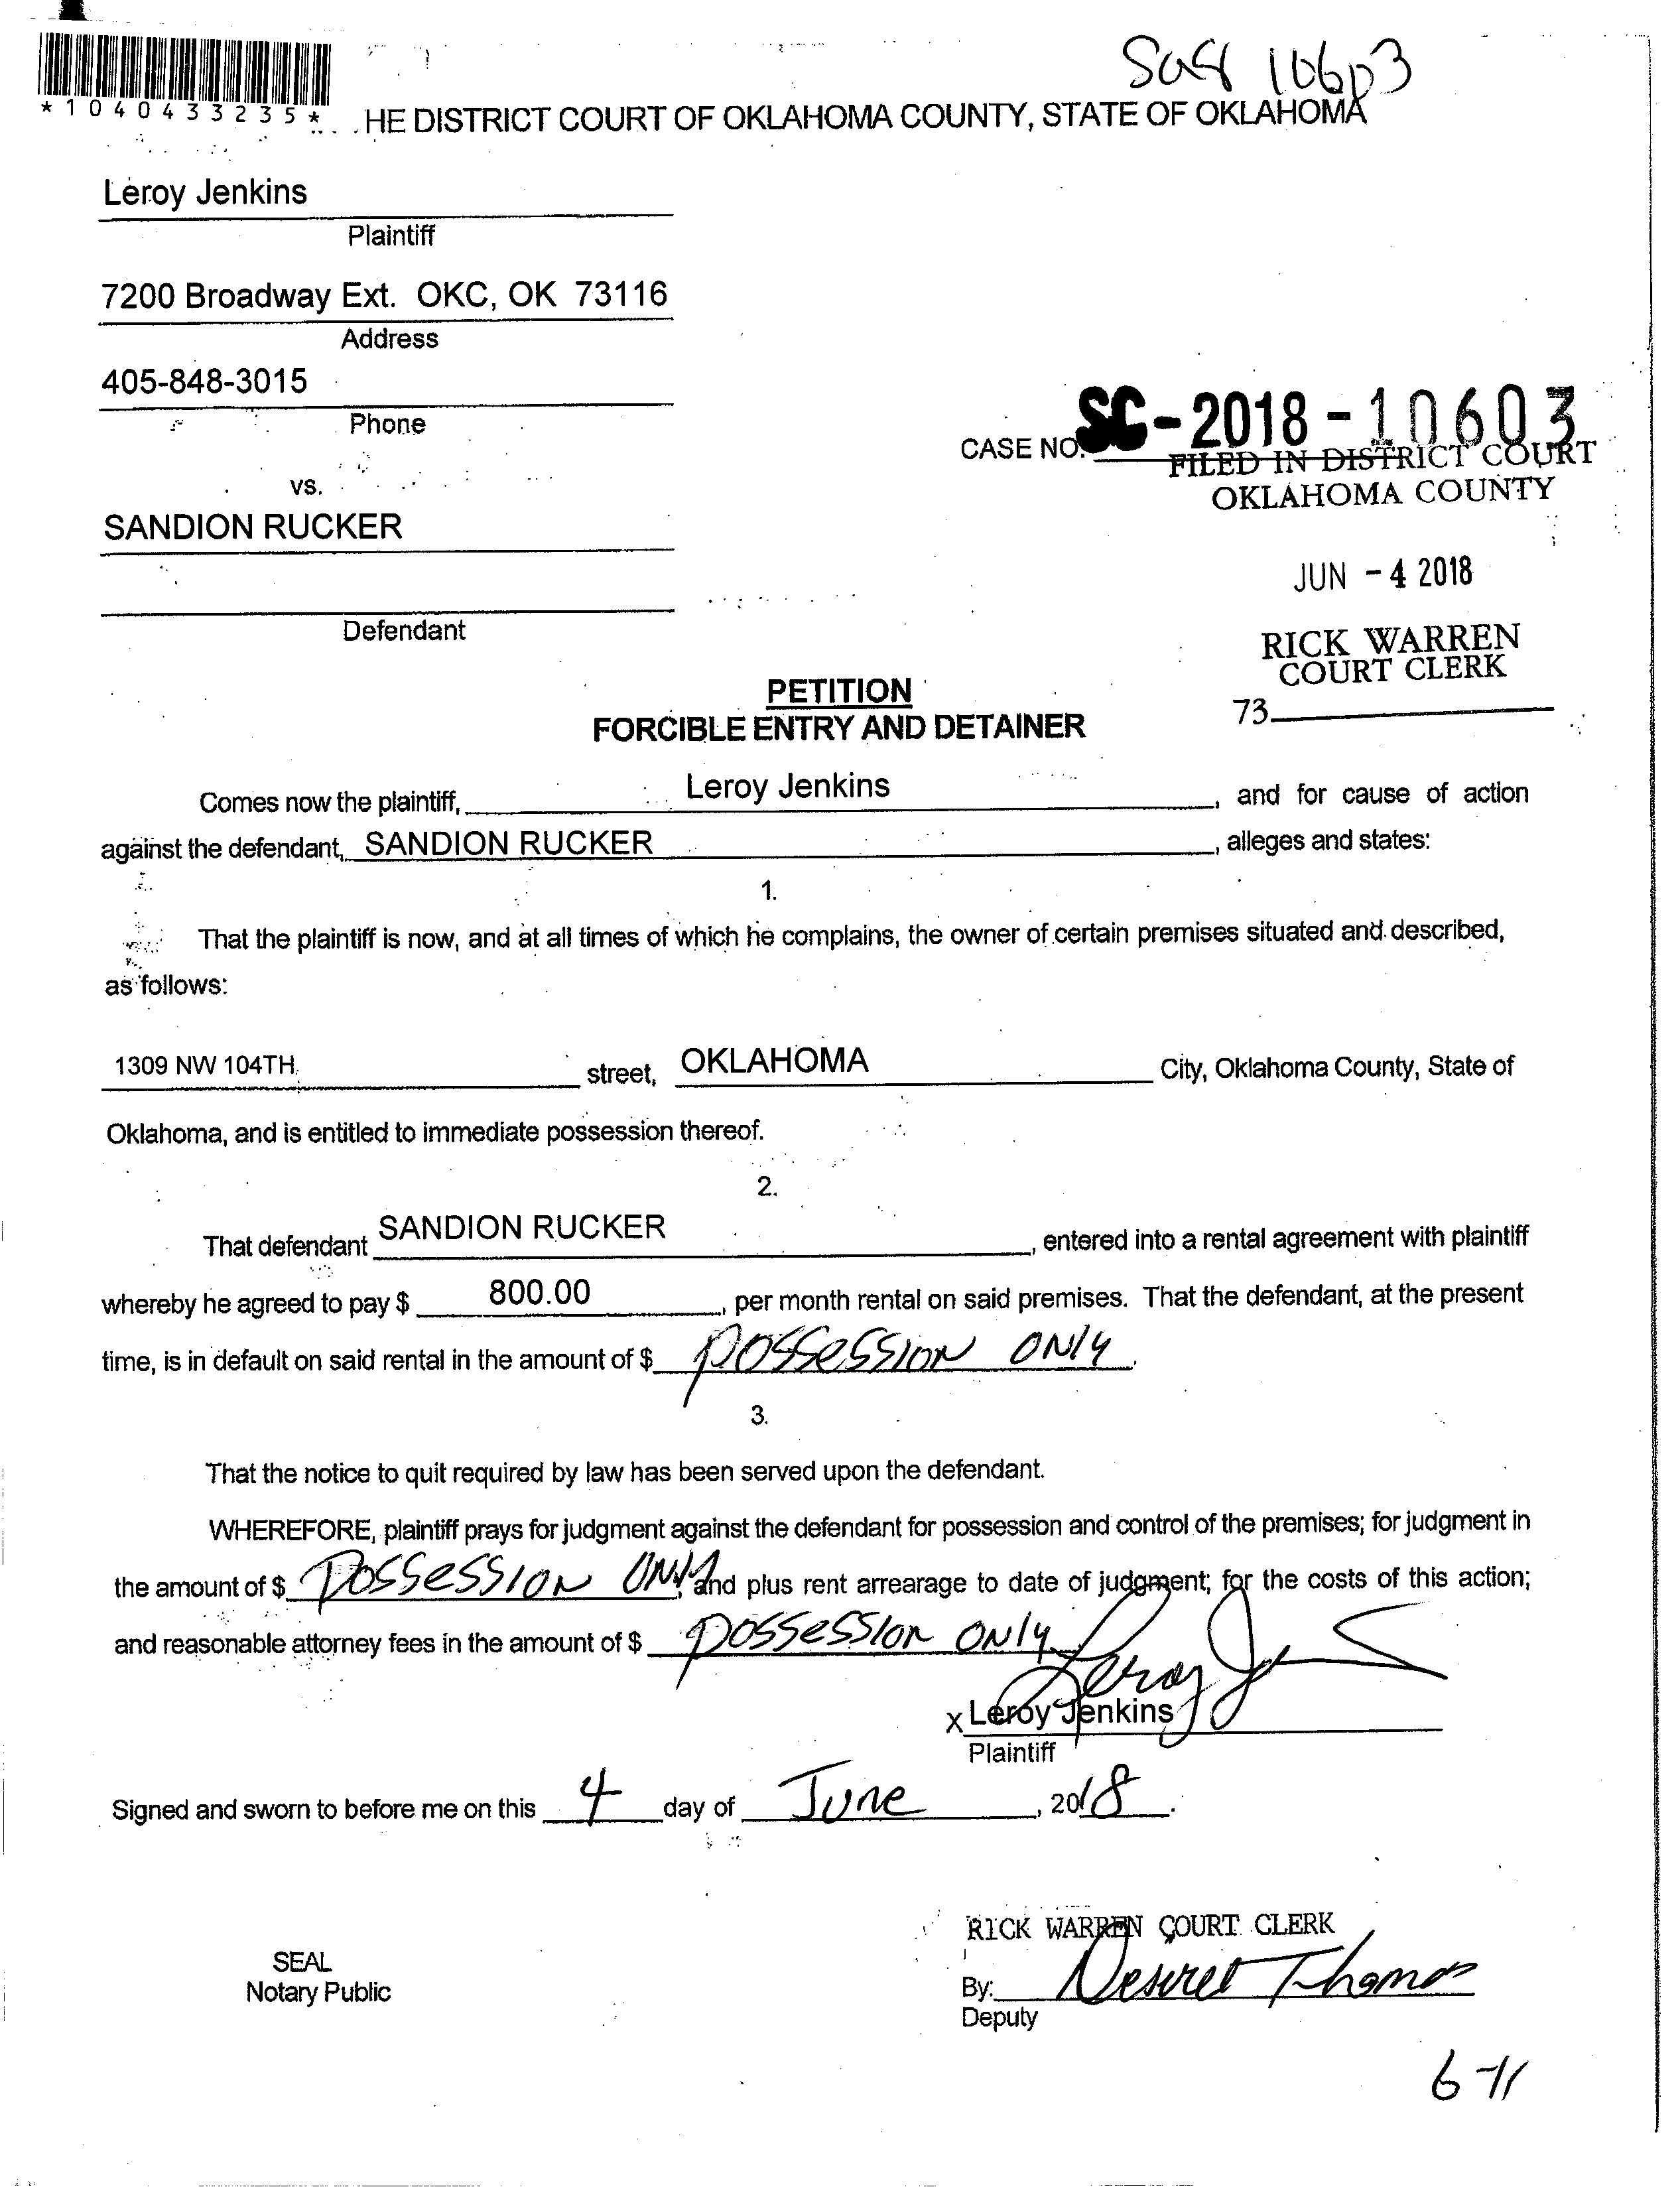 10603
*1040433235*
HE DISTRICT COURT OF OKLAHOMA COUNTY, STATE OF OKLAHOMA
Leroy Jenkins
Plaintiff
7200 Broadway Ext. OKC, OK 73116
Address
405-848-3015
Phone
CASE NO. SC-2018-10603
FILED IN DISTRICT COURT
OKLAHOMA COUNTY
vs.
SANDION RUCKER
JUN - 4 2018
Defendant
RICK WARREN
COURT CLERK
73
PETITION
FORCIBLE ENTRY AND DETAINER
Comes now the plaintiff, Leroy Jenkins, and for cause of action
against the defendant, SANDION RUCKER, alleges and states:
1.
That the plaintiff is now, and at all times of which he complains, the owner of certain premises situated and described,
as follows:
1309 NW 104TH street, OKLAHOMA City, Oklahoma County, State of
Oklahoma, and is entitled to immediate possession thereof.
2.
That defendant SANDION RUCKER, entered into a rental agreement with plaintiff
whereby he agreed to pay $ 800.00, per month rental on said premises. That the defendant, at the present
time, is in default on said rental in the amount of $ possession only.
3.
That the notice to quit required by law has been served upon the defendant.
WHEREFORE, plaintiff prays for judgment against the defendant for possession and control of the premises; for judgment in
the amount of $ Possession ONly, and plus rent arrearage to date of judgment; for the costs of this action;
and reasonable attorney fees in the amount of $ possession ONly
Leroy Je
x Leroy Jenkins
Plaintiff
Signed and sworn to before me on this 4 day of June, 2018.
RICK WARREN COURT CLERK
SEAL
Notary Public
By: Thomas
Deputy
6-11